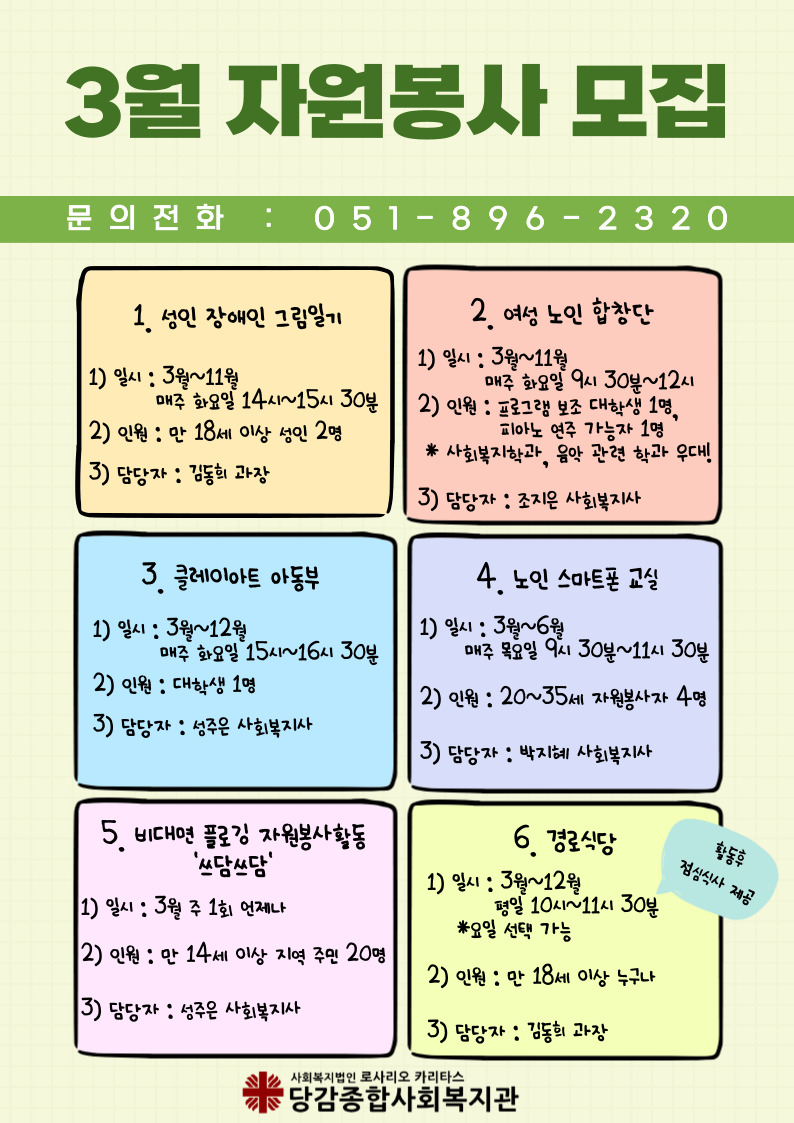 3월 자원봉사 모집
문의전화 : 051-896-2320
1. 성인 장애인 그림일기
1) 일시 : 3월~11월
매주 화요일 14시~15시 30분
2) 인원 : 만 18세 이상 성인 2명
3) 담당자 : 김동희 과장
2. 여성 노인 합창단
1) 일시 : 3월~11월
매주 화요일 9시 30분~12시
2) 인원 : 프로그램 보조 대학생 1명,
피아노 연주 가능자 1명
* 사회복지학과, 음악 관련 학과 우대!
3) 담당자 : 조지은 사회복지사
3. 클레이아트 아동부
1) 일시 : 3월~12월
매주 화요일 15시~16시 30분
2) 인원 : 대학생 1명
3) 담당자 : 성주은 사회복지사
4. 노인 스마트폰 교실
1) 일시 : 3월~6월
매주 목요일 9시 30분~11시 30분
2) 인원 : 20~35세 자원봉사자 4명
3) 담당자 : 박지혜 사회복지사
5. 비대면 플로깅 자원봉사활동
'쓰담쓰담'
1) 일시 : 3월 주 1회 언제나
2) 인원 : 만 14세 이상 지역 주민 20명
3) 담당자 : 성주은 사회복지사
6. 경로식당
활동후
점심식사 제공
1) 일시 : 3월~12월
평일 10시~11시 30분
*요일 선택 가능
2) 인원 : 만 18세 이상 누구나
3) 담당자 : 김동희 과장
사회복지법인 로사리오 카리타스
당감종합사회복지관